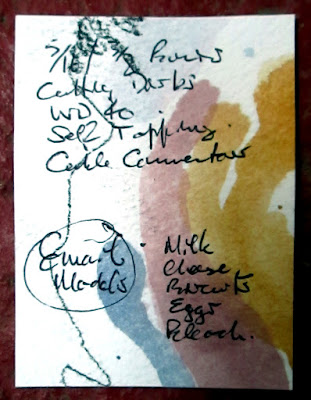 5/16 3/8 Bolts
Cutting Disks
WD 40
Self Tapping.
Cable Connectors
Email
Madels
Milk
Cheese
Biscuits
Eggs
Bleach.